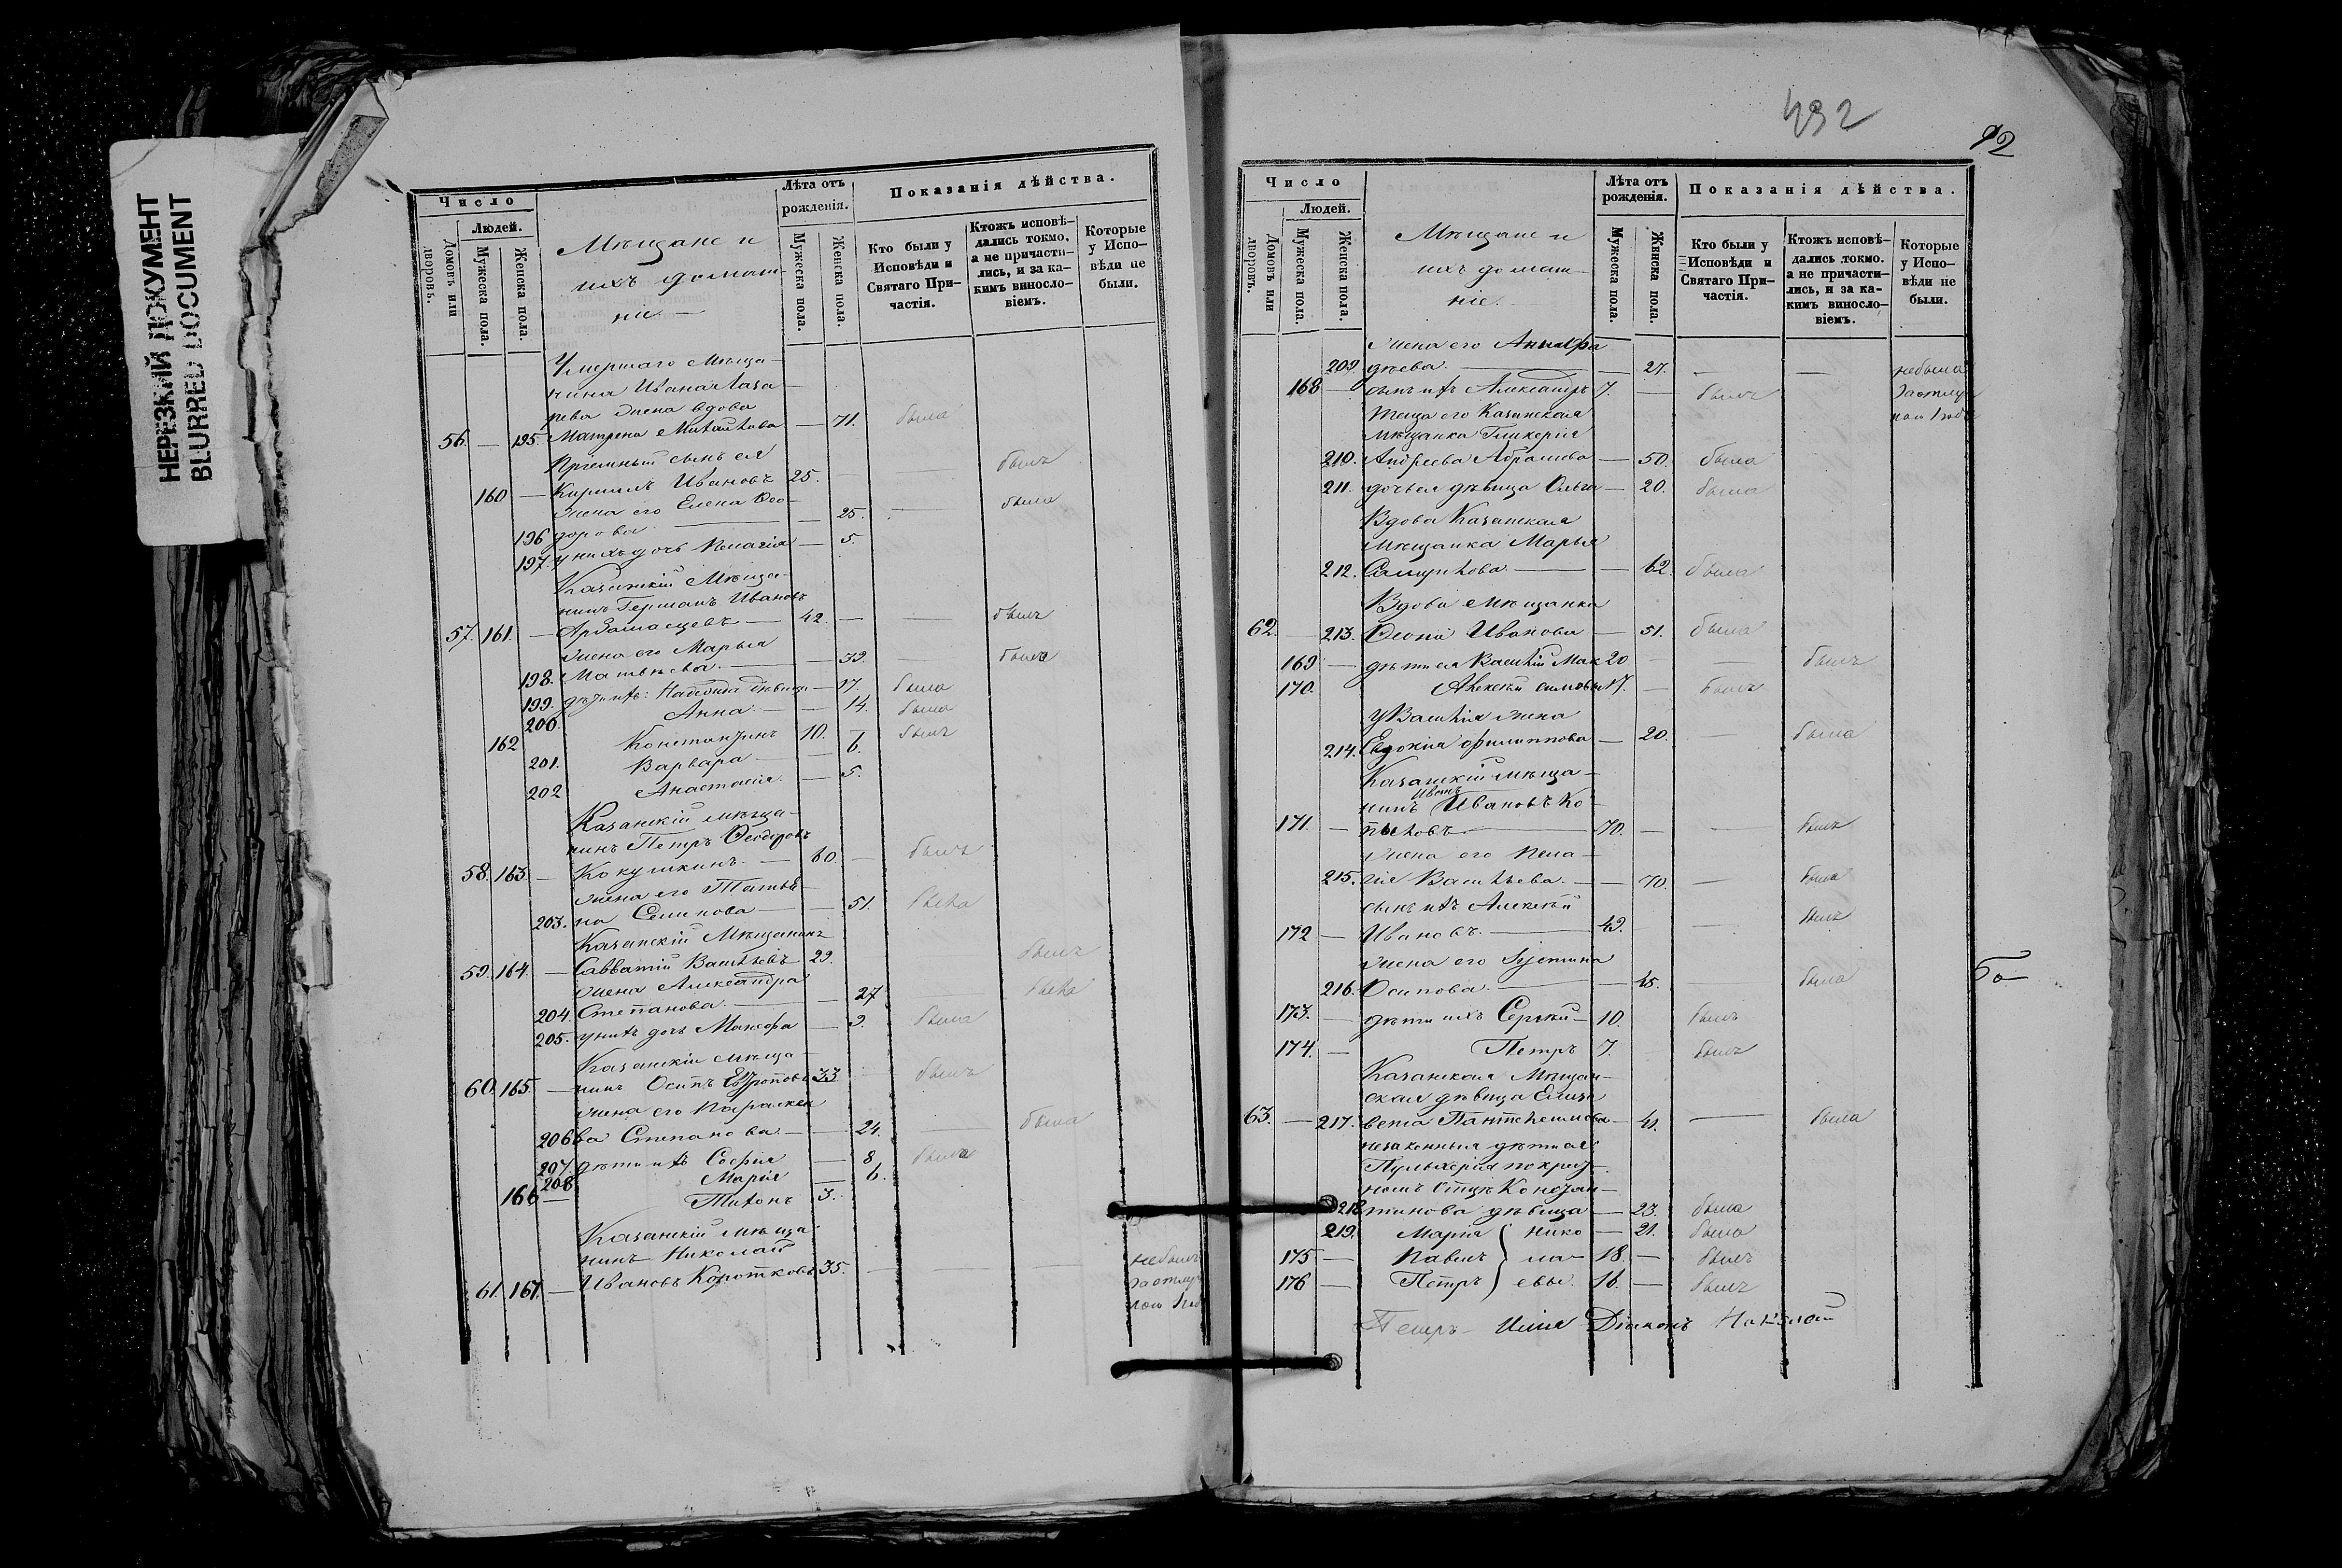 НЕРЕЗКИЙ ДОКУМЕНТ
BLURRED DOCUMENT
Число
Людей.
Домовъ или дворовъ.
Мужеска пола.
Женска пола.
Мѣщане и
ихъ домаш-
ніе.
Лѣта отъ рожденія.
Мужеска пола.
Женска пола.
Показанія дѣйства.
Кто были у Исповѣди и Святаго Причастія.
Ктожъ исповѣдались токмо, а не причастились, и за какимъ винословіемъ.
Которые у Исповѣди не были.
Умершаго Мѣща-
нина Ивана Лаза-
рева жена вдова
56. — 195. Матрена Михайлова — 71. была
Пріемный сынъ ея
160 — Кириллъ Ивановъ 25. былъ
Жена его Елена Ѳео-
196 дорова — 25. была
197. у нихъ дочь Пелагія — 5.
Казанскій Мѣща-
нинъ Германъ Ивановъ
57. 161. — Арзамасцевъ — 42. — — былъ
жена его Марья
198. Матвѣева. — 39. — была
199. дѣти ихъ: Надежда дѣвица — 17. была
200. Анна — 14. была
162 Константинъ 10. — былъ
201. Варвара — 6.
202 Анастасія — 5.
Казанскій мѣща-
нинъ Петръ Ѳеодоровъ
58. 163. — Кокушкинъ. — 60. — былъ
жена его Татья-
203. на Семенова — 51. была
Казанскій Мѣщанинъ
59. 164. — Савватій Васильевъ 29. былъ
жена Александра
204. Степанова. — 27 была
205. у нихъ дочь Манефа — 9. была
Казанскій мѣща-
60. 165. — нинъ Осипъ Евтроповъ 33 былъ
жена его Параскев
206 ва Степанова. — 24. — была
207. дѣти ихъ София — 8. была
208 Марія — 6.
166 — Тихонъ 3.
Казанскій мѣща
нинъ Николай
61. 167. — Ивановъ Коротковъ 35. — — не былъ
за отлуч
492
92
Число
Людей.
Домовъ или дворовъ.
Мужеска пола.
Женска пола.
Мѣщане и
ихъ домаш-
ніе.
Лѣта отъ рожденія.
Мужеска пола.
Женска пола.
Показанія дѣйства.
Кто были у Исповѣди и Святаго Причастія.
Ктожъ исповѣдались токмо, а не причастились, и за какимъ винословіемъ.
Которые у Исповѣди не были.
жена его
209. — 27. — — не была
168 — сынъ ихъ Александръ 7. — былъ
теща его Казанская
мѣщанка Гликерія
210. Андреева Абрамова — 50. была
211. дочь ея дѣвица Ольга — 20. была
Вдова Казанская
мѣщанка Марья
212. — 62. была
Вдова мѣщанка
62. — 213. Ивановa — 51. была
169 — дѣти ея Василій Мак 20 — — былъ
170. Алексѣй симовы 17. — былъ
У Василія жена
214. Евдокія Филиппова — 20. — была
Казанскій мѣща-
нинъ Иванъ Ивановъ Ко-
171. — пыловъ — 70. — — былъ
жена его Пела-
215. гія Васильева. — 70. — была
сынъ ихъ Алексѣй
172 — Ивановъ. — 49. — былъ
жена его Іустина
216. Осипова. — 45. — была
173. — дѣти ихъ Сергѣй — 10. былъ
174. — Петръ 7. былъ
Казанская Мѣщан-
ская дѣвица Елиза
63. — 217. вета Пантелеимова — 41. — была
незаконныя дѣти ея
Пульхерія по крест-
номъ отцѣ Констан-
218 тинова дѣвица — 23. была
219. Марія Нико — 21. была
175 — Павелъ ла- 18. — былъ
176 — Петръ евы. 16. — былъ
Діаконъ